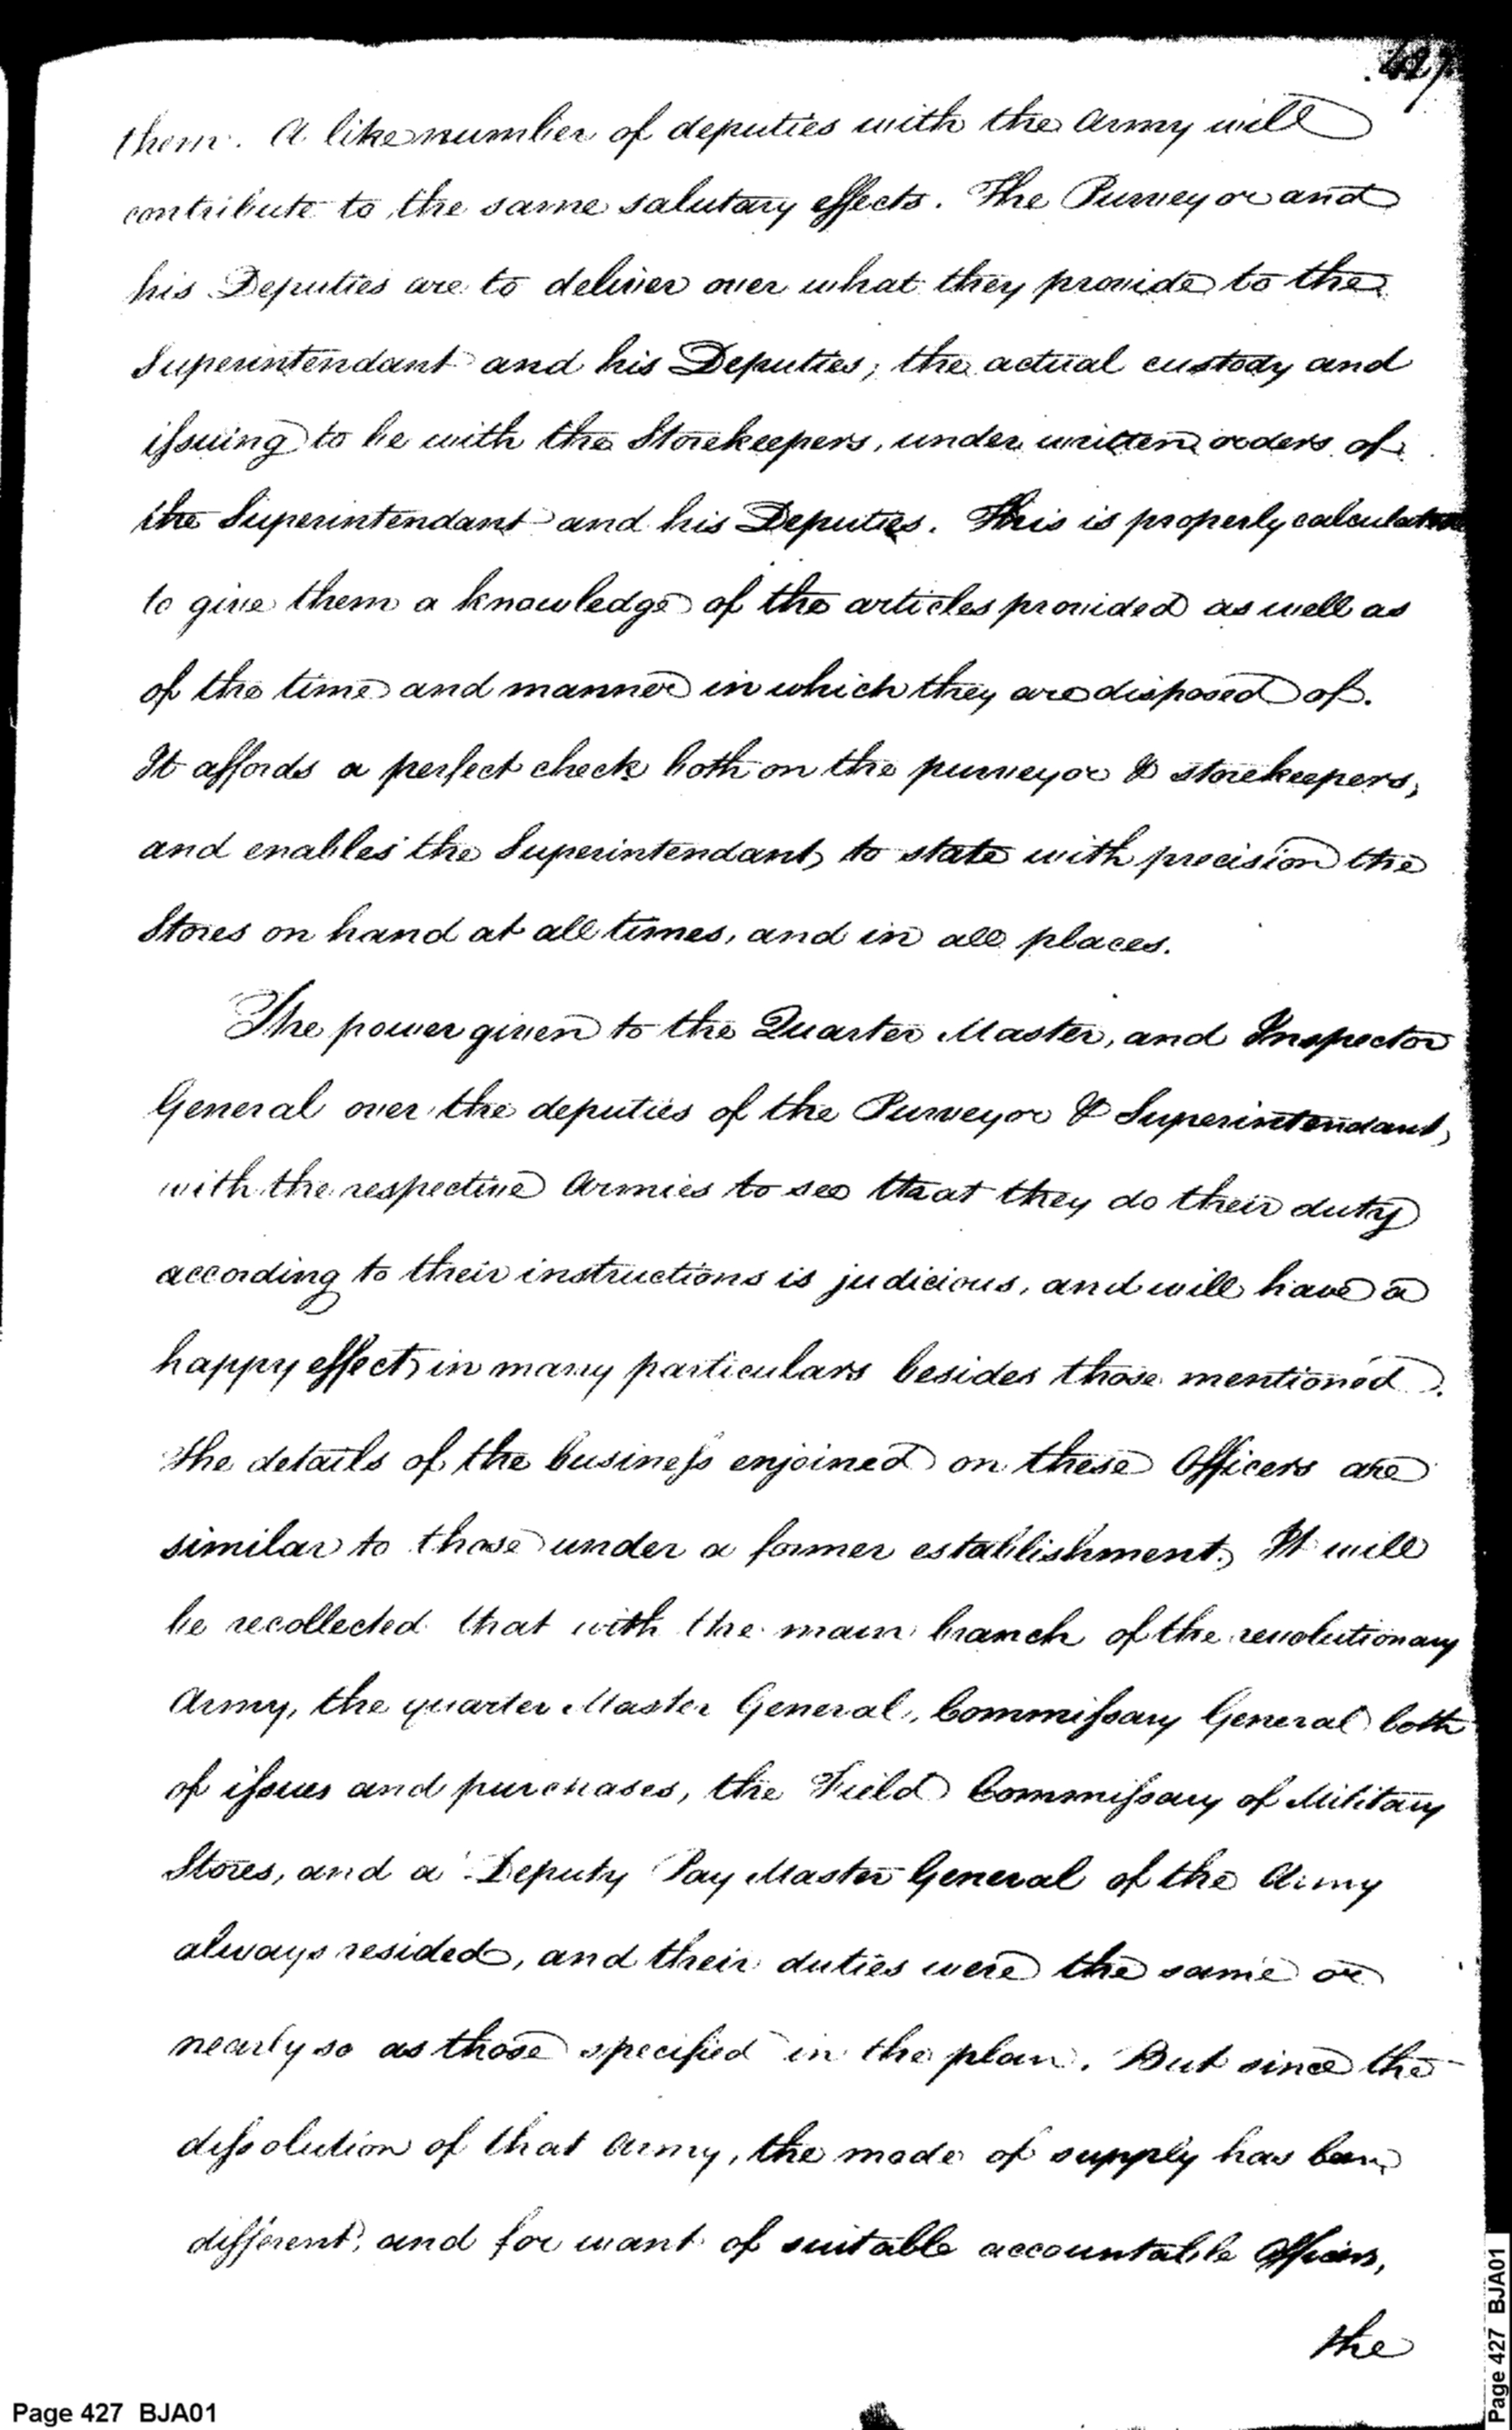 427
them. A like number of deputies with the Army will
contribute to the same salutary effects. The Purveyor and
his Deputies are to deliver over what they provide to the
Superintendant and his Deputies; the actual custody and
issuing to be with the Storekeepers, under written orders of
the Superintendant and his Deputies. This is properly calculated
to give them a knowledge of the articles provided as well as
of the time and manner in which they are disposed of.
It affords a perfect check both on the purveyor & storekeepers,
and enables the Superintendant, to state with precision the
Stores on hand at all times, and in all places.
The power given to the Quarter Master, and Inspector
General over the deputies of the Purveyor & Superintendant,
with the respective Armies to see that they do their duty
according to their instructions is judicious, and will have a
happy effect, in many particulars besides those mentioned.
The details of the business enjoined on these Officers are
similar to those under a former establishment. It will
be recollected that with the main branch of the revolutionary
Army, the quarter Master General, Commissary General both
of issues and purchases, the Field Commissary of Military
Stores, and a Deputy Pay Master General of the Army
always resided, and their duties were the same or
nearly so as those specified in the plan. But since the
dissolution of that Army, the mode of supply has been
different, and for want of suitable accountable Officers,
the
Page 427 BJA01
Page 427 BJA01